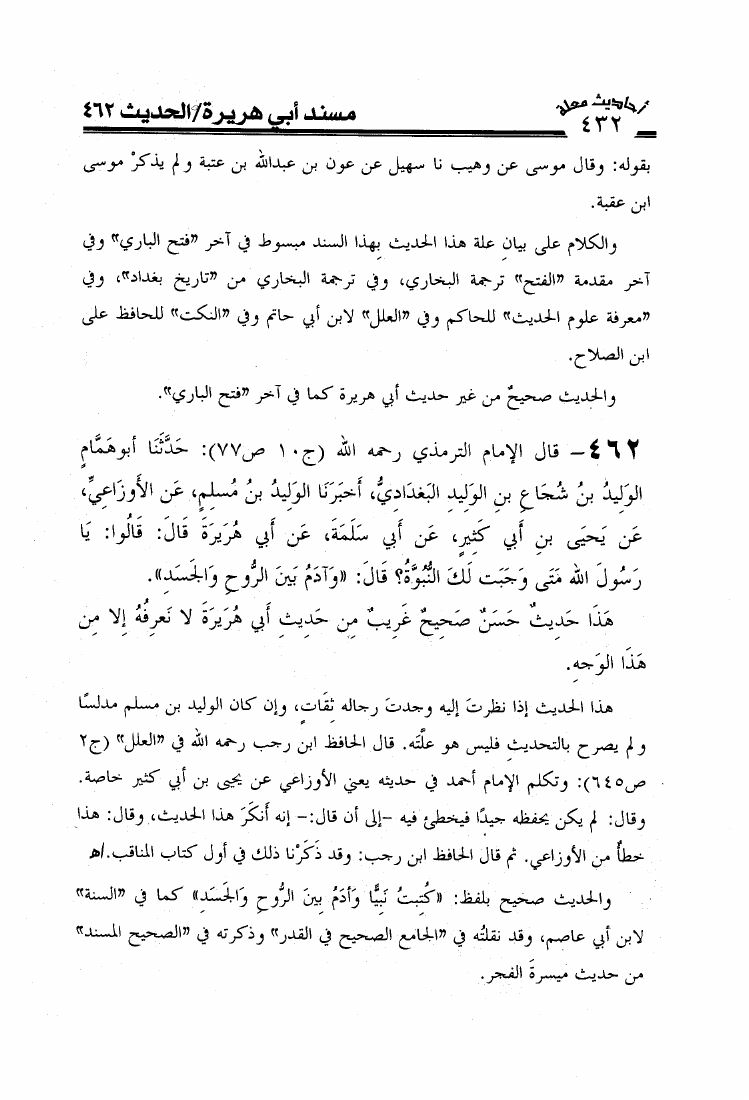 أحاديث معلة
٤٣٢
مسند أبي هريرة/الحديث ٤٦٢
بقوله: وقال موسى عن وهيب نا سهيل عن عون بن عبدالله بن عتبة ولم يذكرْ موسى
ابن عقبة.
والكلام على بيانِ علة هذا الحديث بهذا السند مبسوط في آخر «فتح الباري» وفي
آخر مقدمة «الفتح» ترجمة البخاري، وفي ترجمة البخاري من «تاريخ بغداد»، وفي
«معرفة علوم الحديث» للحاكم وفي «العلل» لابن أبي حاتم وفي «النكت» للحافظ على
ابن الصلاح.
والحديث صحيحٌ من غير حديث أبي هريرة كما في آخر «فتح الباري».
٤٦٢- قال الإمام الترمذي رحمه الله (ج١٠ ص٧٧): حَدَّثَنَا أبوهَمَّامٍ
الوَلِيدُ بنُ شُجَاعِ بنِ الوَلِيدِ البَغدَادِيُّ، أَخبَرَنَا الوَلِيدُ بنُ مُسلِمٍ، عَن الأَوزَاعِيِّ،
عَن يَحيَى بنِ أَبِي كَثِيرٍ، عَن أَبِي سَلَمَةَ، عَن أَبِي هُرَيرَةَ قَالَ: قَالُوا: يَا
رَسُولَ الله مَتَى وَجَبَت لَكَ النُّبُوَّةُ؟ قَالَ: «وَآدَمُ بَينَ الرُّوحِ وَالجَسَدِ».
هَذَا حَدِيثٌ حَسَنٌ صَحِيحٌ غَرِيبٌ مِن حَدِيثِ أَبِي هُرَيرَةَ لا نَعرِفُهُ إلا مِن
هَذَا الوَجهِ.
هذا الحديث إذا نظرتَ إليه وجدتَ رجاله ثِقَاتٍ، وإن كان الوليد بن مسلم مدلسًا
ولم يصرح بالتحديث فليس هو علَّته. قال الحافظ ابن رجب رحمه الله في «العلل» (ج٢
ص٦٤٥): وتكلم الإمام أحمد في حديثه يعني الأوزاعي عن يحيى بن أبي كثير خاصة.
وقال: لم يكن يحفظه جيدًا فيخطئ فيه -إلى أن قال:- إنه أَنكَرَ هذا الحديث، وقال: هذا
خطأٌ من الأوزاعي. ثم قال الحافظ ابن رجب: وقد ذَكَرْنا ذلك في أول كتاب المناقب./اهـ
والحديث صحيح بلفظ: «كُتِبتُ نَبِيًّا وَآدَمُ بَينَ الرُّوحِ وَالجَسَدِ» كما في «السنة»
لابن أبي عاصم، وقد نقلتُه في «الجامع الصحيح في القدر» وذكرته في «الصحيح المسند»
من حديث ميسرةَ الفجر.